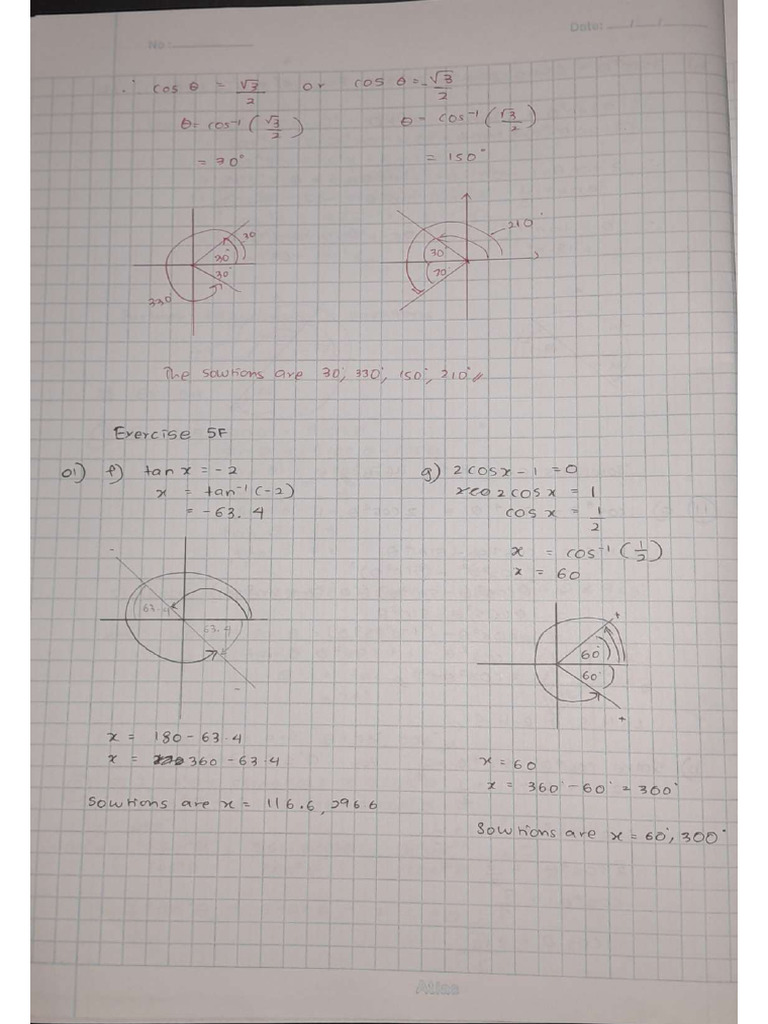 No :
Date: / /
∴ cos θ = √3/2 or cos θ = -√3/2
θ = cos⁻¹ (√3/2) θ = cos⁻¹ (√3/2)
= 30° = 150°
30
30°
30°
330
210°
30°
30°
The solutions are 30°, 330°, 150°, 210° //
Exercise 5F
01) f) tan x = -2
x = tan⁻¹ (-2)
= -63.4
-
63.4
63.4
-
x = 180 - 63.4
x = 360 - 63.4
Solutions are x = 116.6, 296.6
g) 2 cos x - 1 = 0
2 cos x = 1
cos x = 1/2
x = cos⁻¹ (1/2)
x = 60
+
60°
60°
+
x = 60
x = 360° - 60° = 300°
Solutions are x = 60°, 300°
Atlas